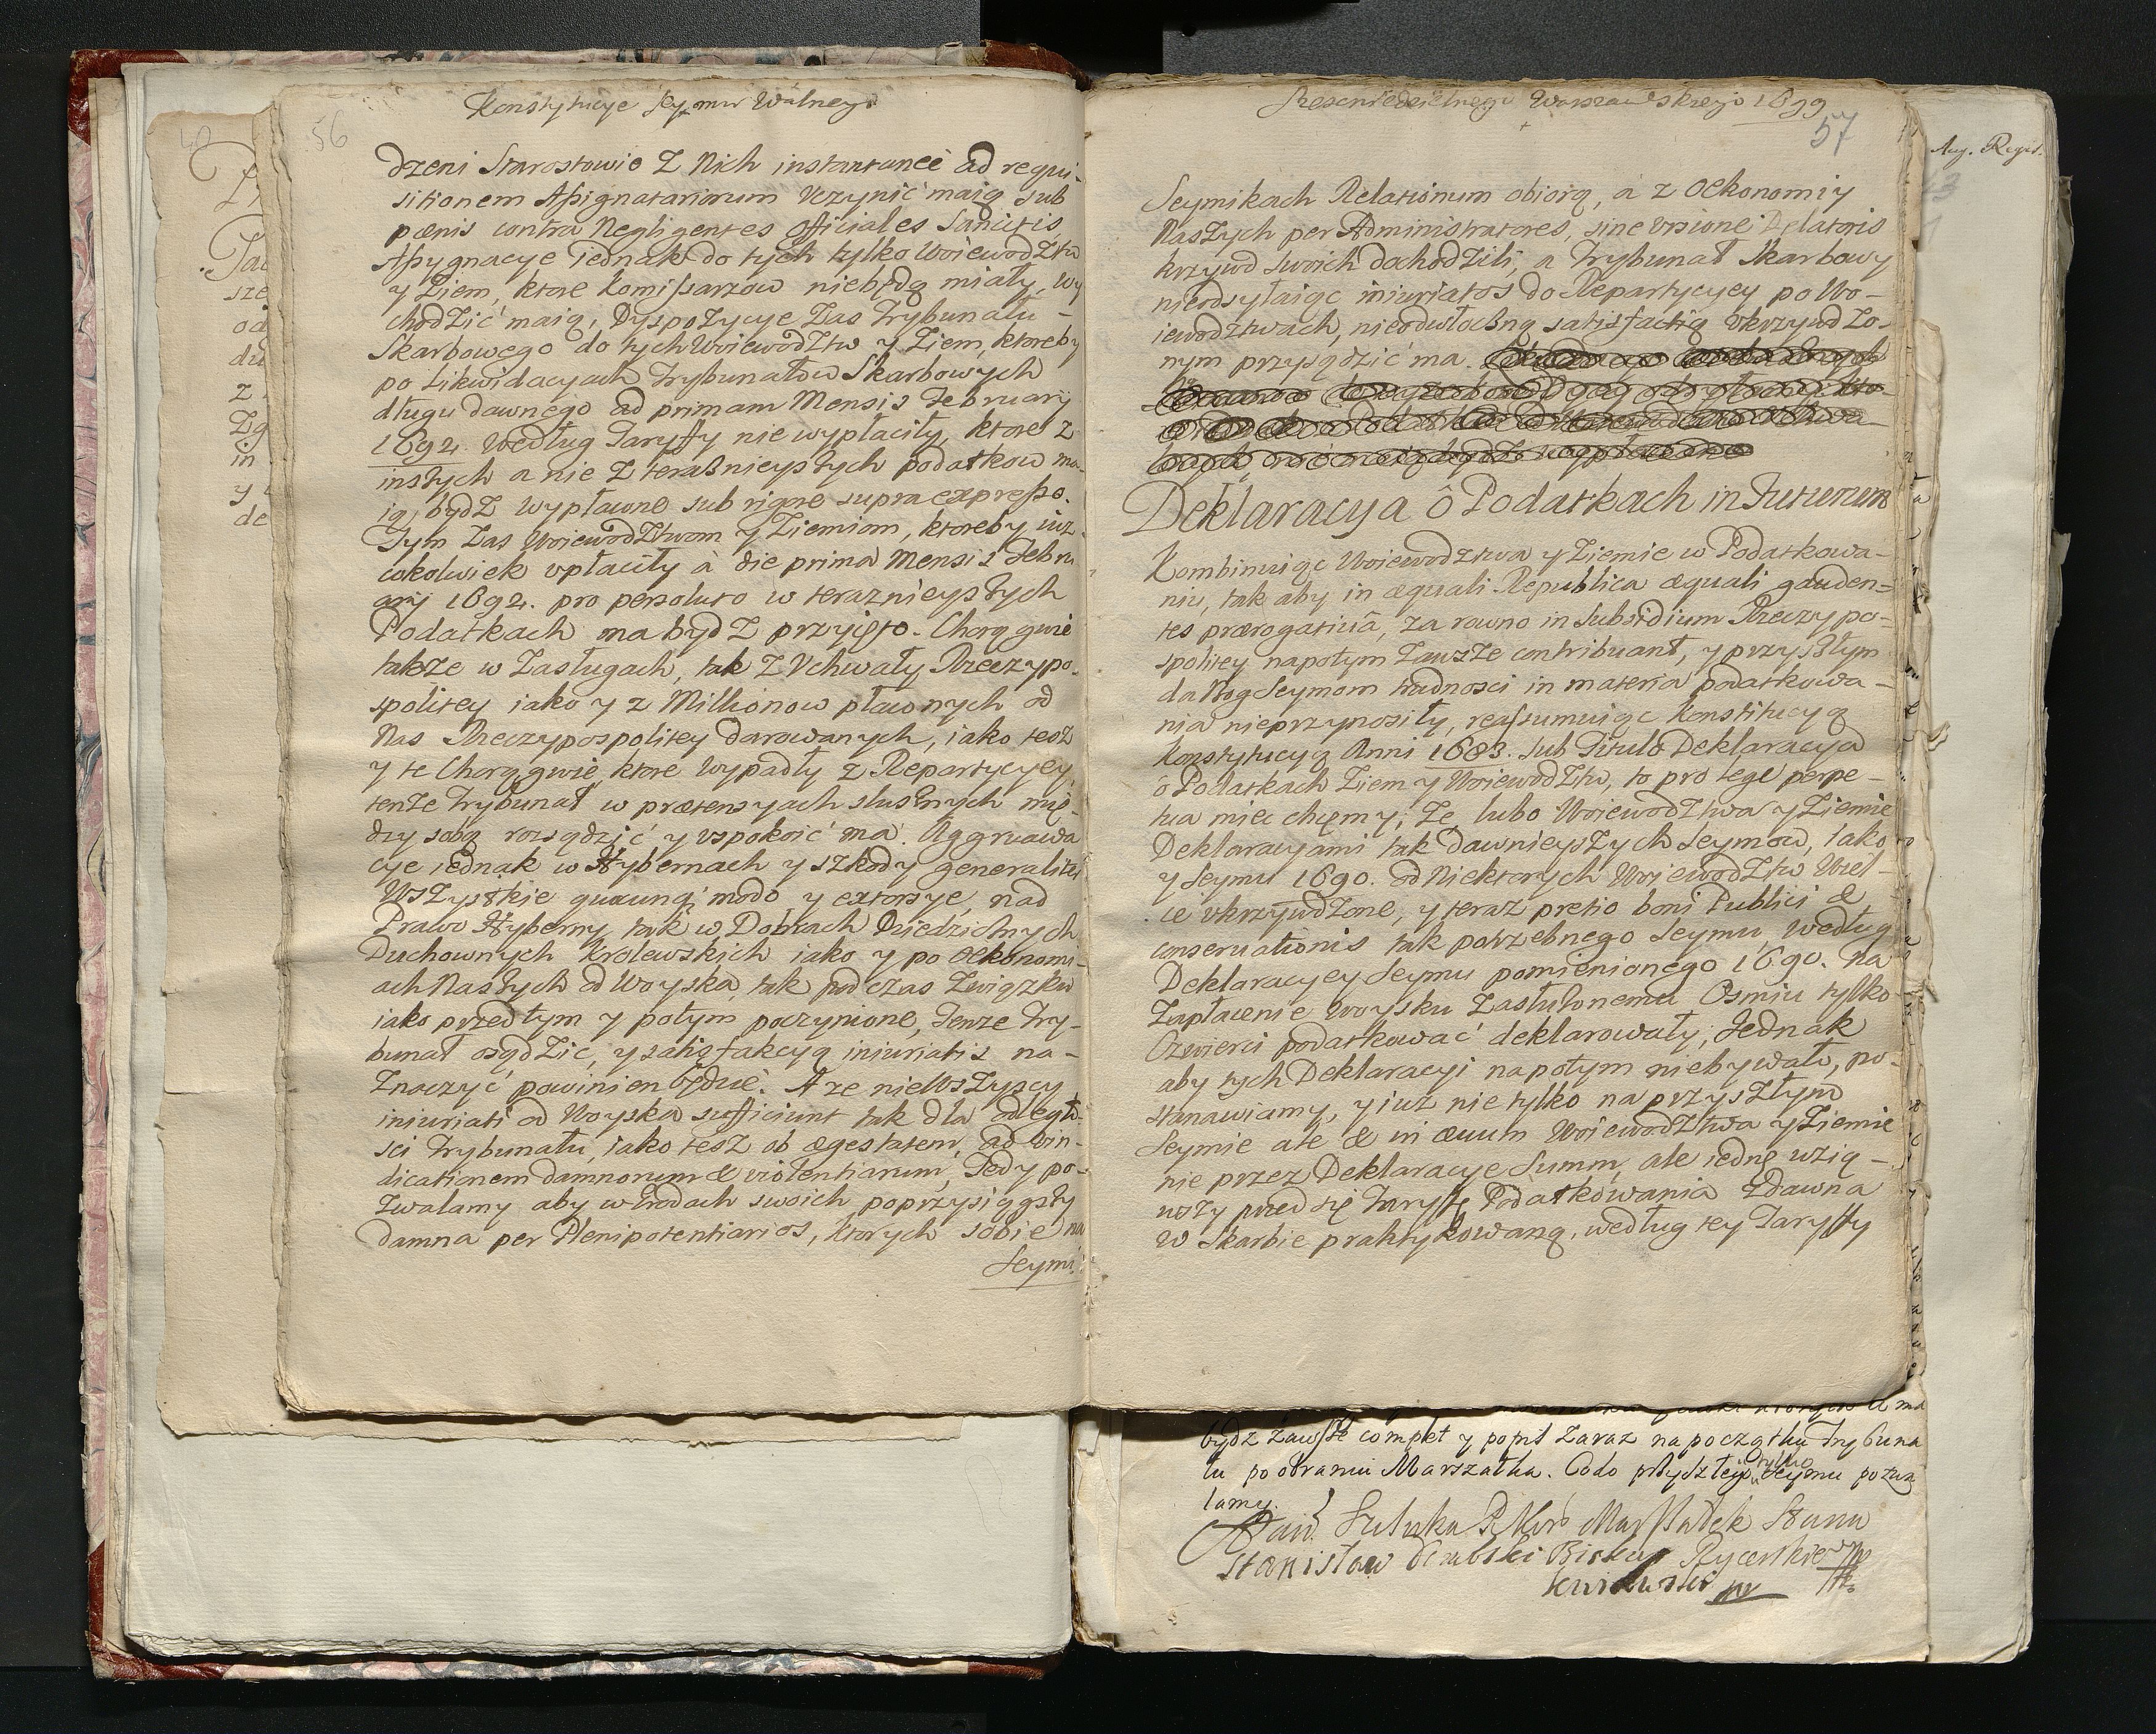 Konstytucye Seymu Walnego
56
dzeni Starostowie z Nich instantaneè ad requi-
sitionem Assignatariorum Vczynić maią sub
pœnis contra Negligentes officiales Sancitis,
Assygnacye iednak do tych tylko Woiewodztw
y Ziem, ktore Komissarzow niebędą miały, wy
chodzić maią, Dyspozycye Zas Trybunału
Skarbowego do tych Woiewodztw y Ziem, ktoreby
po Likwidacyach Trybunałow Skarbowych
długu dawnego ad primam Mensis February
1692. Według Taryffy nie wypłaciły, ktore z
inszych a nie z teraznieyszych podatkow ma-
ią bydz wypłacone sub rigore supra expresso.
Tym Zas Woiewodztwom y Ziemiom, ktoreby iuz
cokolwiek vpłaciły à die prima Mensis Febru
ary 1692. pro persoluto w teraznieyszych
Podatkach ma bydz przyięto. Chorągwie
takze w Zasługach, tak z Vchwały Rzeczypo-
spolitey iako y z Millionow płaconych od
Nas Rzeczypospolitey darowanych, iako tesz
y te Chorągwie, ktore wypadły z Repartycyey,
tenze Trybunał w prætensyach słusznych mię-
dzy sobą rozsądzić y vspokoić ma. Aggrawa
cye iednak w Hybernach y szkody generaliter
Wszystkie quocunq; modo y extorsye nad
Prawo Hyberny tak w Dobrach Dziedzicznych
Duchownych Krolewskich iako y po Oekonomi-
ach Naszych od Woyska, tak pod czas Związku
iako przedtym y potym poczynione, Tenze Try-
bunał osądzić, y satisfakcyą iniuriatis na-
znaczyć powinien będzie. A ze nie Wszyscy
iniuriati od Woyska sufficiunt tak dla odległo-
sci Trybunału, iako tesz ob ægestatem, ad vin-
dicationem damnorum & violentiarum, Tedy po-
zwalamy aby w Grodach swoich poprzysiągszy
damna per Plenipotentiarios, ktorych sobie na
Seymi-
Szescniedzielnego Warszawskiego 1699
57
Seymikach Relationum obiorą, a z Oekonomiy
Naszych per Administratores, sine visione Delatoris
krzywd swoich dochodzili, a Trybunał Skarbowy
nieodsyłaiąc iniuriatos do Repartycyey po Wo-
iewodztwach, nieodwłoczną satisfactią vkrzywdzo-
nym przysądzić ma.
Deklaracya ô Podatkach in Futurum
Kombinuiąc Woiewodztwa y Ziemie w Podatkowa-
niu, tak aby in æquali Republica æquali gauden-
tes prærogatiuâ, za rowno in Subsidium Rzeczypo-
spolitey napotym zawsze contribuant, y przyszłym
da Bog Seymom trudnosci in materia podatkowa-
nia nieprzynosiły, reassumuiąc Konstitucyą
Konstytucyą Anni 1683. sub Titulo Deklaracya
ô Podatkach Ziem y Woiewodztw, to pro lege perpe-
tua miec chcemy; Ze lubo Woiewodztwa y Ziemie
Deklaracyami tak dawnieyszych Seymow, iako
y Seymu 1690. od Niektorych Woiewodztw Wiel-
ce vkrzywdzone, y teraz pretio boni Publici &
conseruationis tak potrzebnego Seymu, według
Deklaracyey Seymu pomienionego 1690. na
Zapłacenie Woysku Zasłuzonemu Osmiu tylko
Czwierci podatkować deklarowały, Jednak
aby tych Deklaracyi napotym niebywało, po-
stanawiamy, y iuz nie tylko na przyszłym
Seymie ale & in æuum Woiewodztwa y Ziemie
nie przez Deklaracye Summ, ale iednę wzią-
wszy przed się Taryffę Podatkowania zdawna
w Skarbie praktykowaną, według tey Taryffy
Aug. Regis.
bydz zawsze complet y popis zaraz na początku Trybuna
łu po obraniu Marszałka. Co do przyszłego tylko Seymu pozwa
lamy.
Marszałek Stanu
Stanisław Biskup Rycerskiego